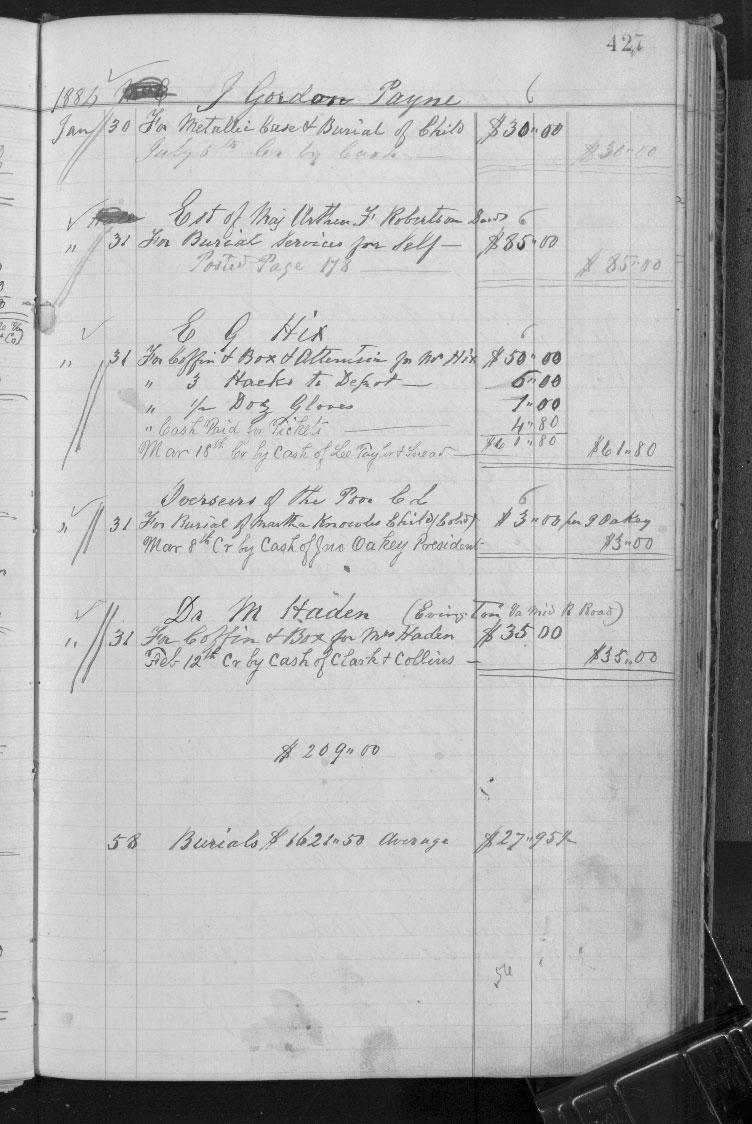 427
1886 J Gordon Payne 6
Jan 30 For Metallic Case & Burial of Child $30.00
July 5th Cr by Cash $30.00
Est of Maj Arthur F. Robertson Decd 6
" 31 For Burial Services for Self $85.00
Posted Page 178 $85.00
E G Hix 6
" 31 For Coffin & Box & Attention for Mr Hix $50.00
" 3 Hacks to Depot 6.00
" 1/2 Doz Gloves 1.00
" Cash Paid for Tickets 4.80
$61.80
Mar 18th Cr by Cash of Lee Taylor & Snead $61.80
Overseers of the Poor 6
" 31 For Burial of Martha Knowles Child (Cold) $3.00 per J Oakey
Mar 8th Cr by Cash of Jno Oakey President $3.00
Dr M Haden (Evington Va Mid R Road)
" 31 For Coffin & Box for Mrs Haden $35.00
Feb 12th Cr by Cash of Clark & Collins $35.00
$209.00
58 Burials $1621.50 Average $27.95